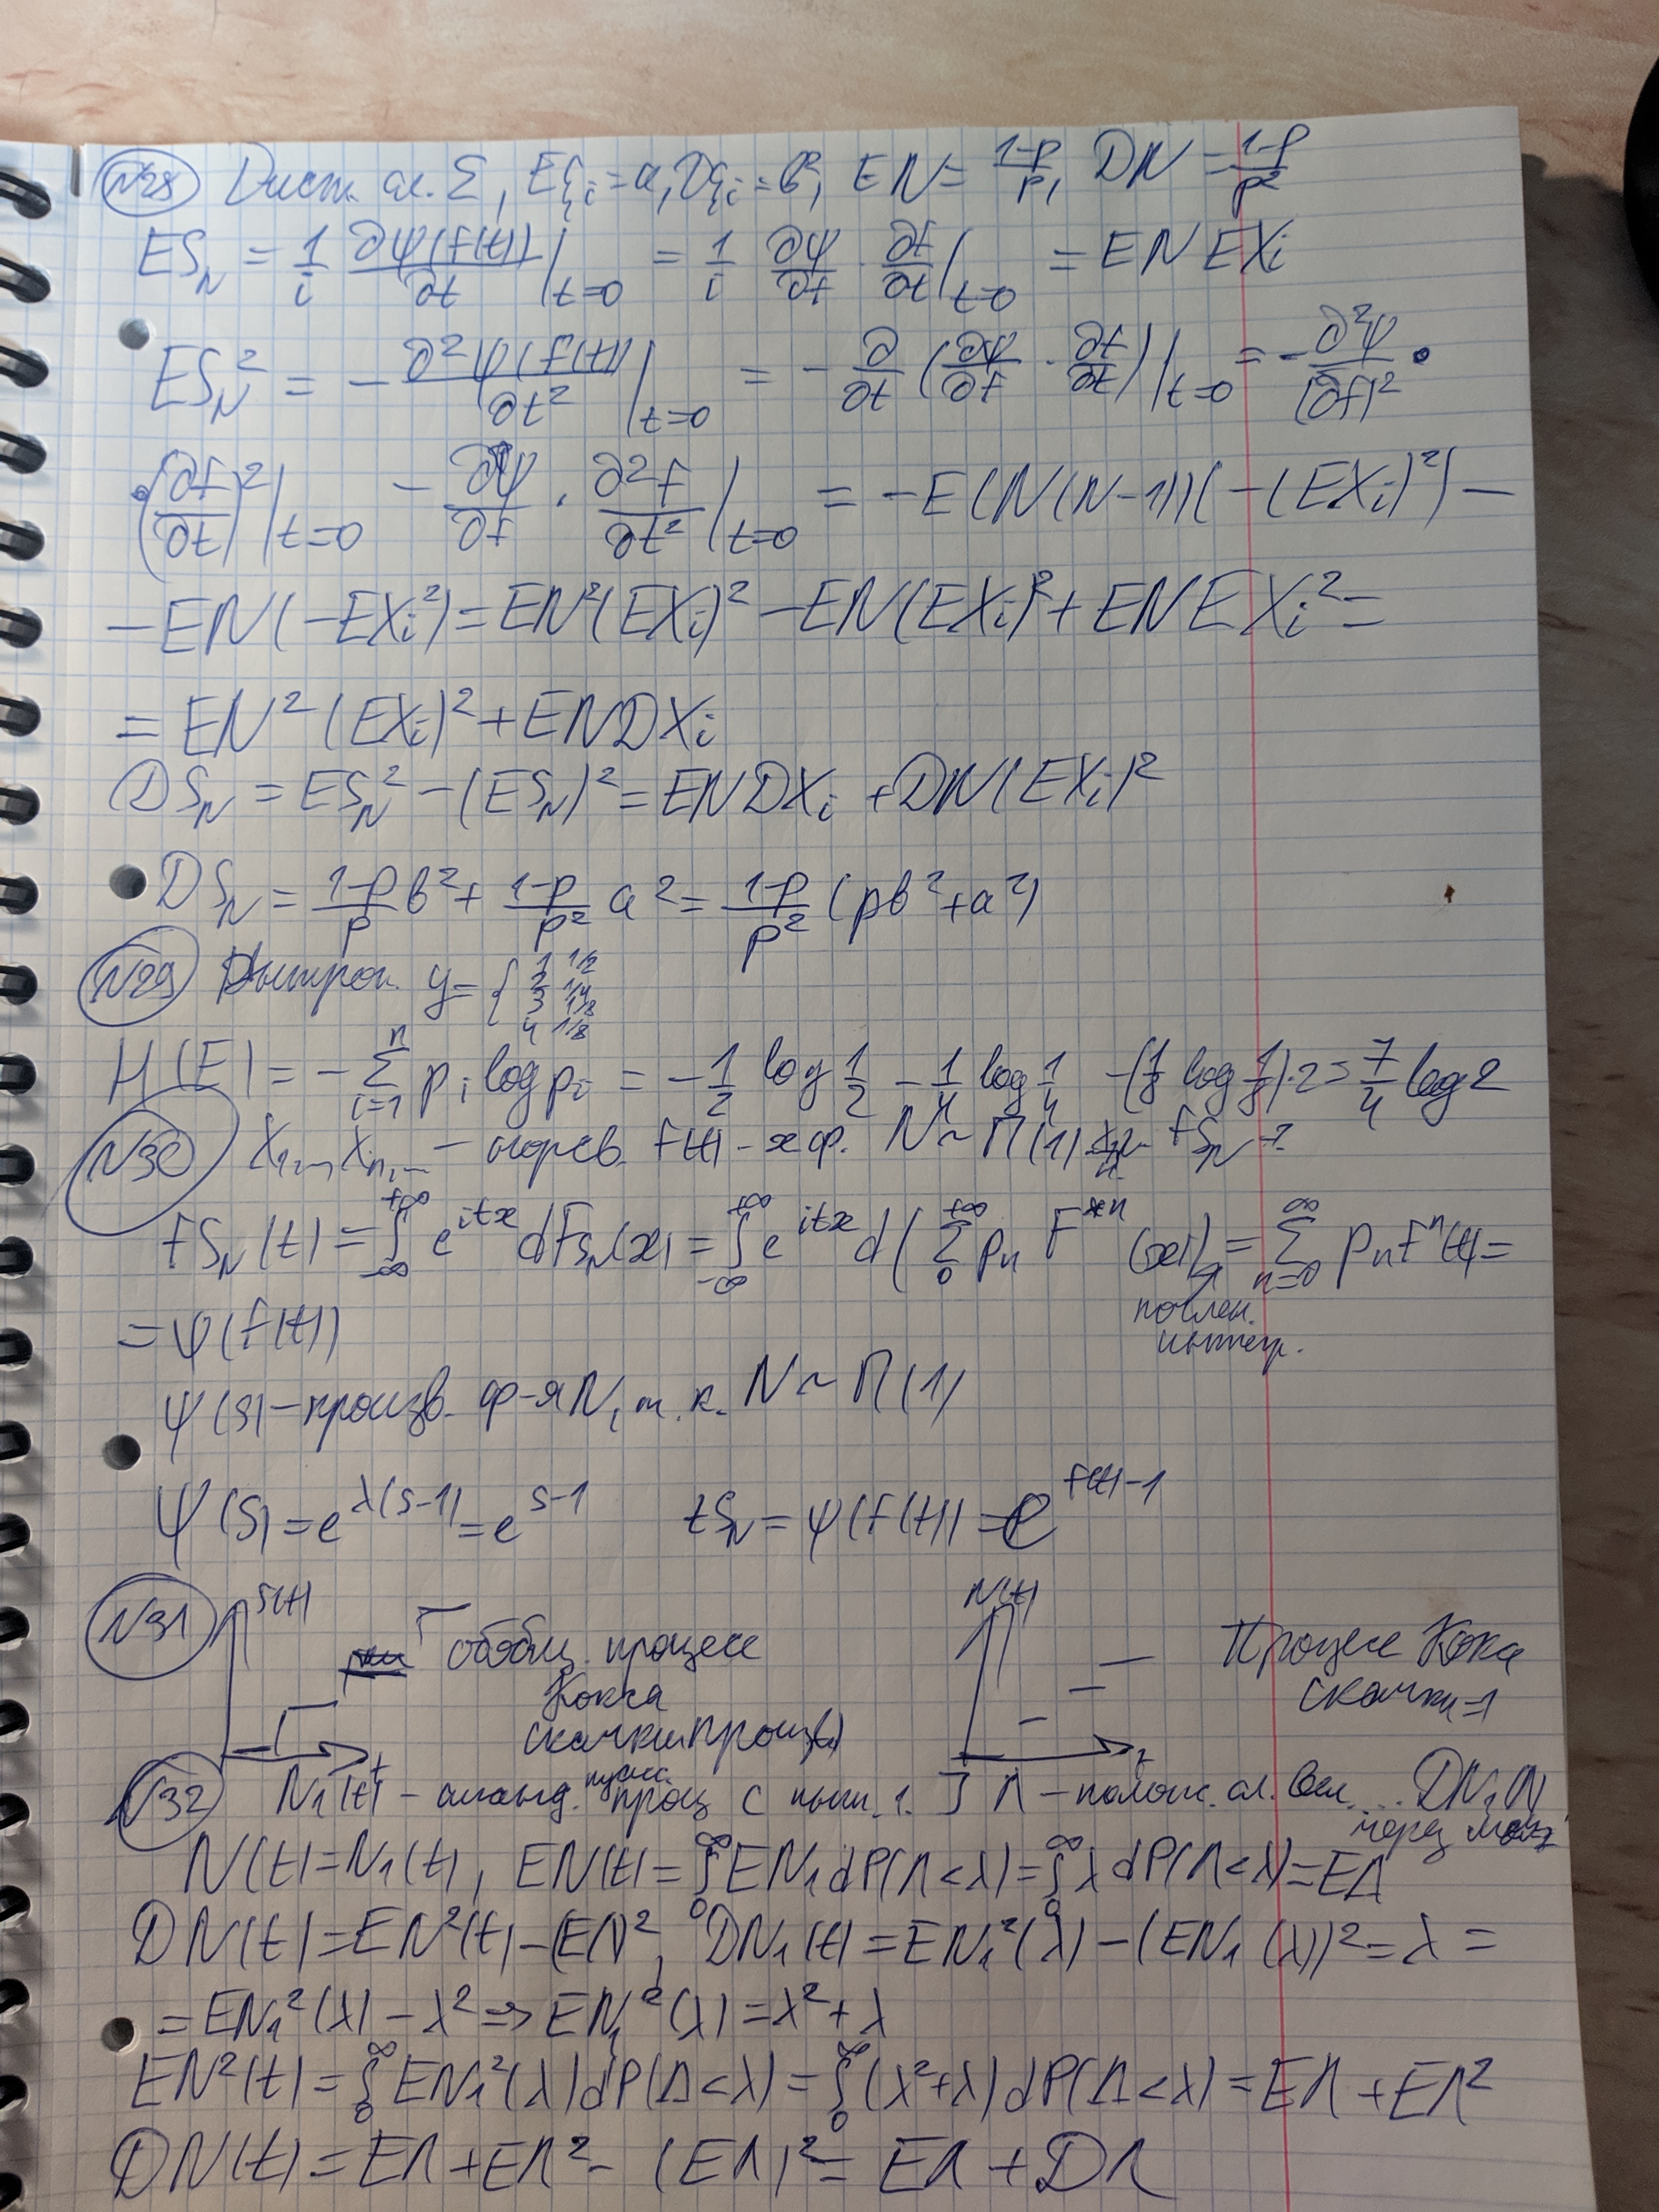 N28 Дисп. сл. Σ, Eξᵢ = a, Dξᵢ = b², EN = (1-p)/p, DN = (1-p)/p²
ES_N = 1/i ∂ψ(f(t))/∂t |t=0 = 1/i ∂ψ/∂f · ∂f/∂t |t=0 = EN EXᵢ
ES_N² = - ∂²ψ(f(t))/∂t² |t=0 = - ∂/∂t (∂ψ/∂f · ∂f/∂t) |t=0 = - ∂²ψ/(∂f)² ·
· (∂f/∂t)² |t=0 - ∂ψ/∂f · ∂²f/∂t² |t=0 = -E(N(N-1))(-(EXᵢ)²) -
- EN(-EXᵢ²) = EN²(EXᵢ)² - EN(EXᵢ)² + EN EXᵢ² =
= EN²(EXᵢ)² + EN DXᵢ
DS_N = ES_N² - (ES_N)² = EN DXᵢ + DN(EXᵢ)²
DS_N = (1-p)/p b² + (1-p)/p² a² = (1-p)/p² (pb² + a²)
N29 Энтроп. y = { 1 1/2
2 1/4
3 1/8
4 1/8
H(E) = - Σ i=1 n pᵢ log pᵢ = - 1/2 log 1/2 - 1/4 log 1/4 - (1/8 log 1/8)·2 = 7/4 log 2
N30 X₁,..., Xₙ,... - норсв. f(t) - х.ф. N ~ П(1) f S_N - ?
f S_N(t) = ∫ -∞ +∞ e^{itx} dF_{S_N}(x) = ∫ -∞ +∞ e^{itx} d( Σ 0 +∞ pₙ F^{*n} (x)) = Σ n=0 ∞ pₙ fⁿ(t) =
почлен.
интегр.
= ψ(f(t))
ψ(s) - произв. ф-я N, т.к. N ~ П(1)
ψ(s) = e^{λ(s-1)} = e^{s-1} f S_N = ψ(f(t)) = e^{f(t)-1}
N31 S(t) обобщ. процесс
Кокса
скачки произв) t
N(t) t Процесс Кокса
скачки = 1
N32 N₁(t) - станд. пуасс. проц с инт. 1. ] Λ - полож. сл. вел. ... DN, N
через
N(t) = N₁(t), EN(t) = ∫ 0 ∞ EN₁ dP(Λ<λ) = ∫ 0 ∞ λ dP(Λ<λ) = EΛ
DN(t) = EN²(t) - (EN)², DN₁(t) = EN₁²(λ) - (EN₁(λ))² = λ =
= EN₁²(λ) - λ² => EN₁²(λ) = λ² + λ
EN²(t) = ∫ 0 ∞ EN₁²(λ) dP(Λ<λ) = ∫ 0 ∞ (λ²+λ) dP(Λ<λ) = EΛ + EΛ²
DN(t) = EΛ + EΛ² - (EΛ)² = EΛ + DΛ